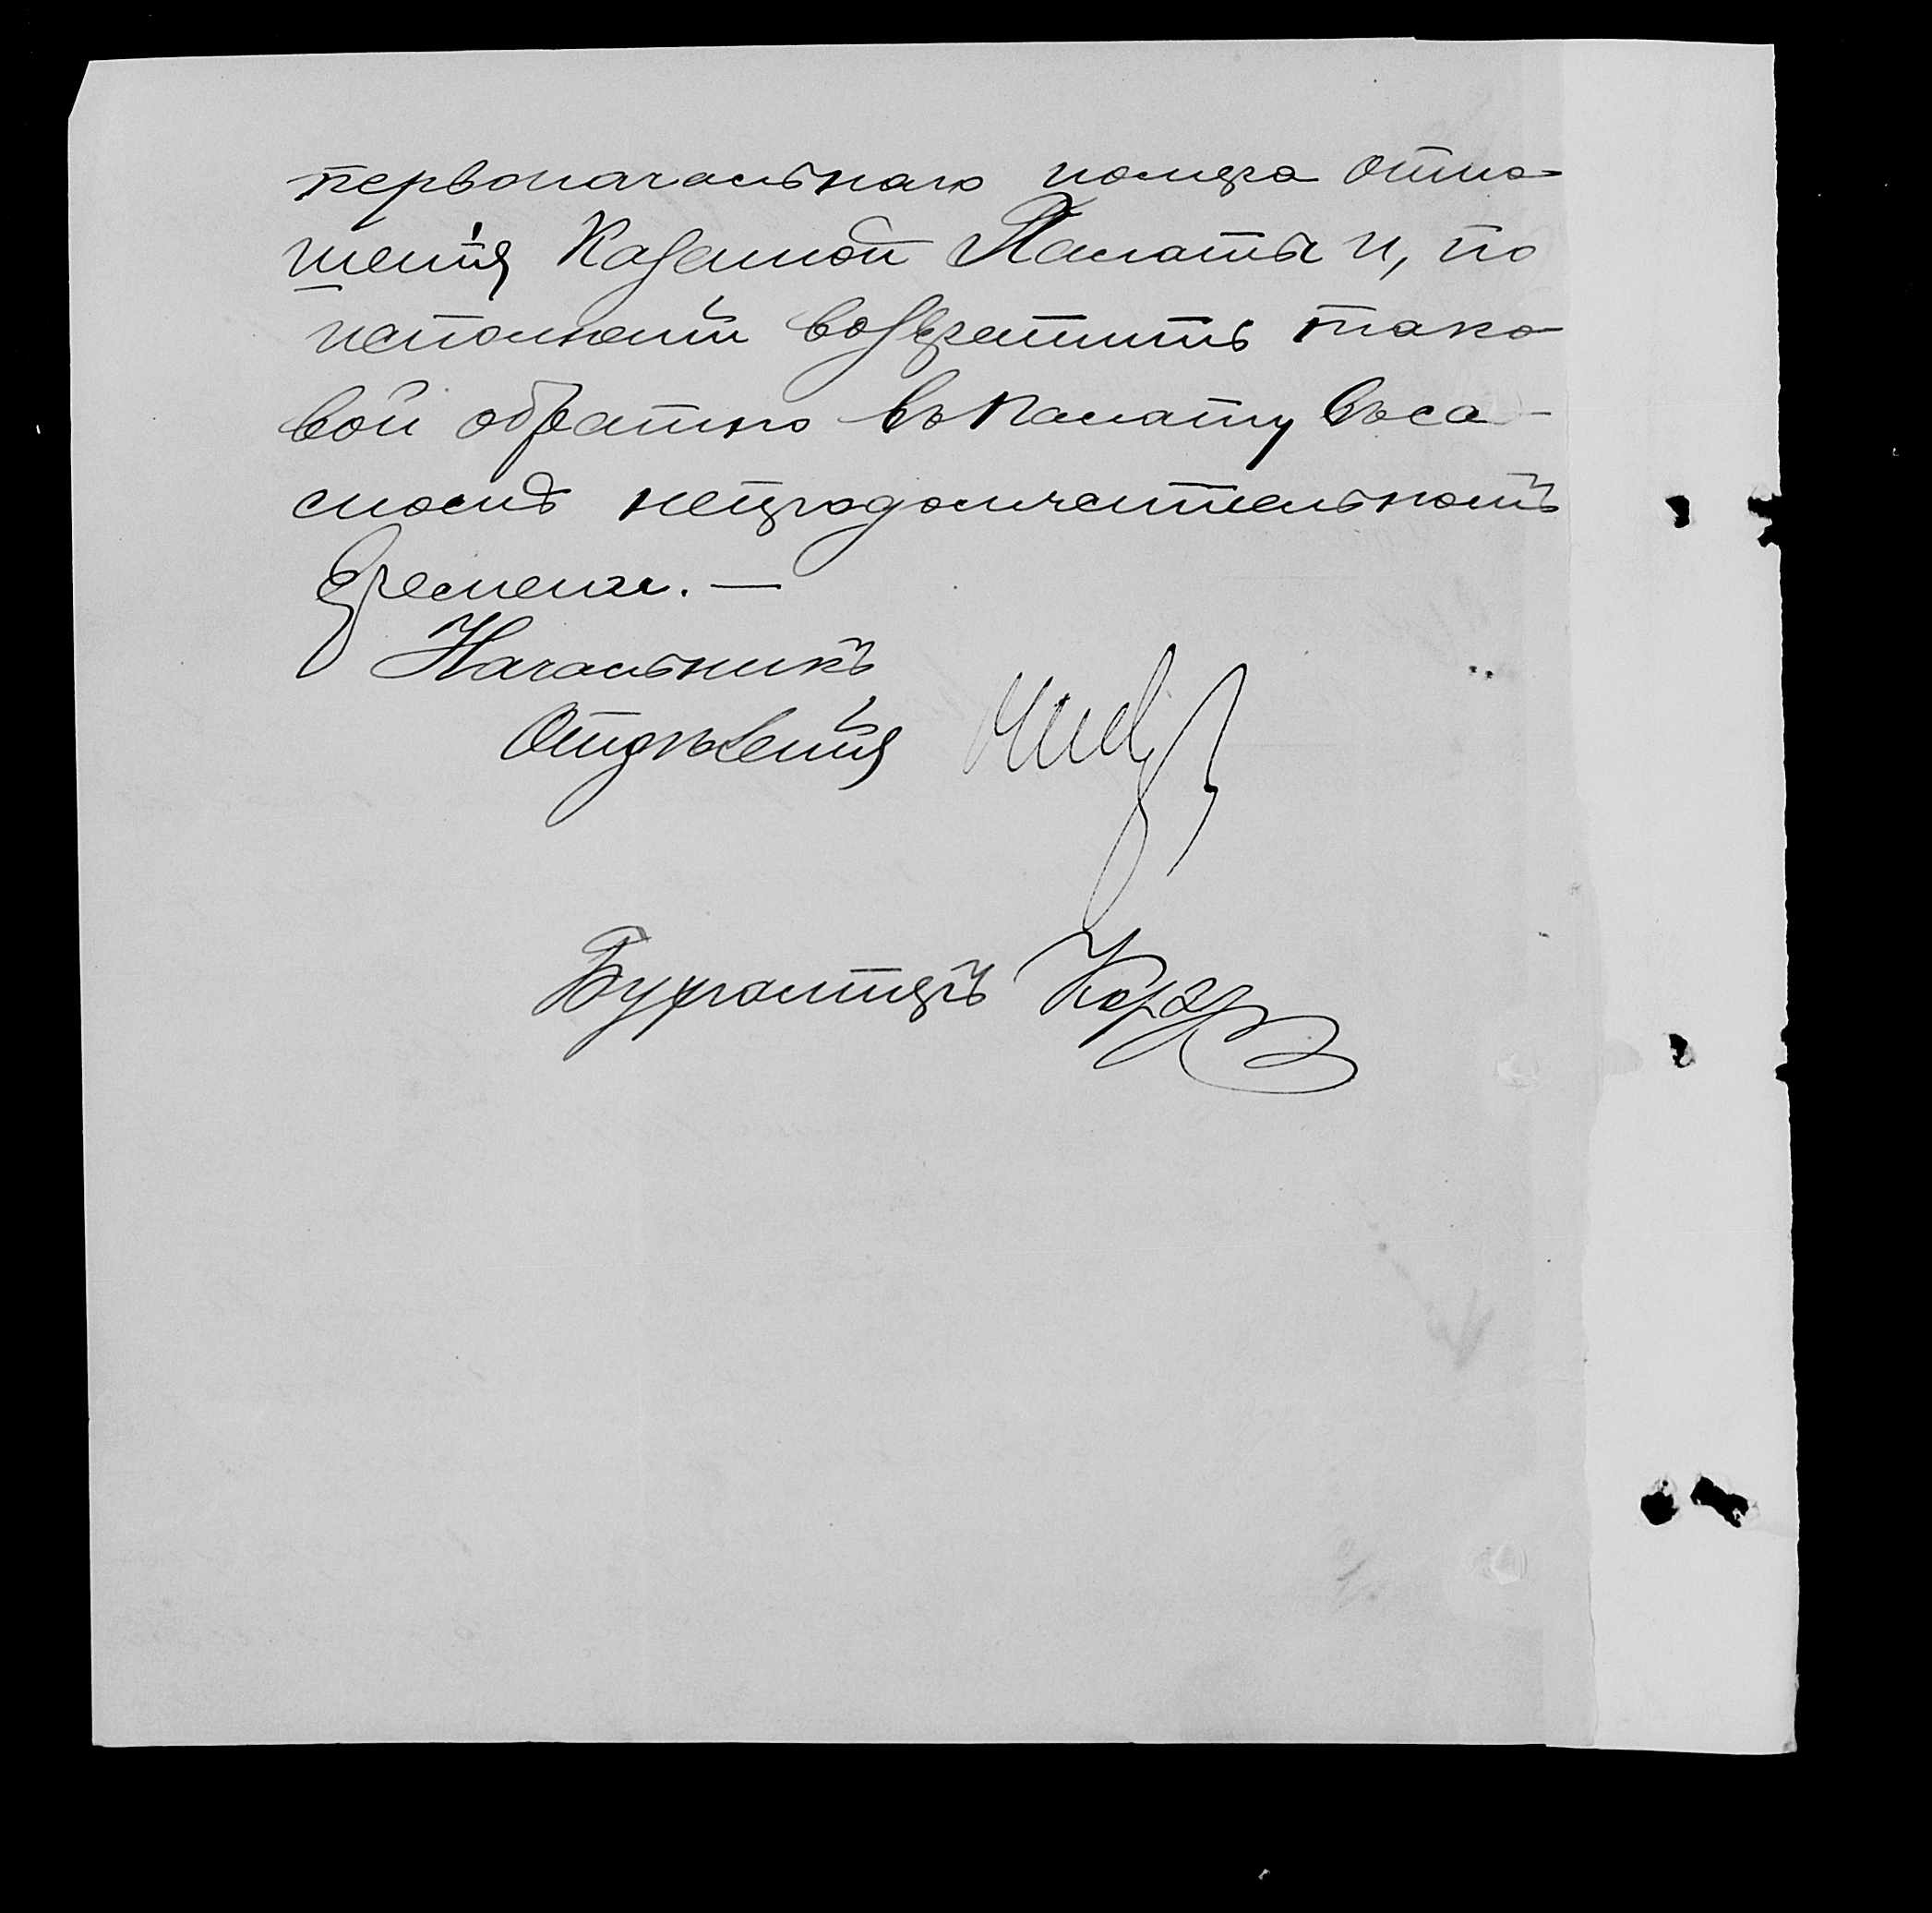 первоначальнаго номера отно-
шенія Казенной Палаты и, по
исполненіи возвратить тако-
вой обратно въ Палату въ са-
момъ непродолжительномъ
времени. —
Начальникъ
Отдѣленія
Бухгалтеръ